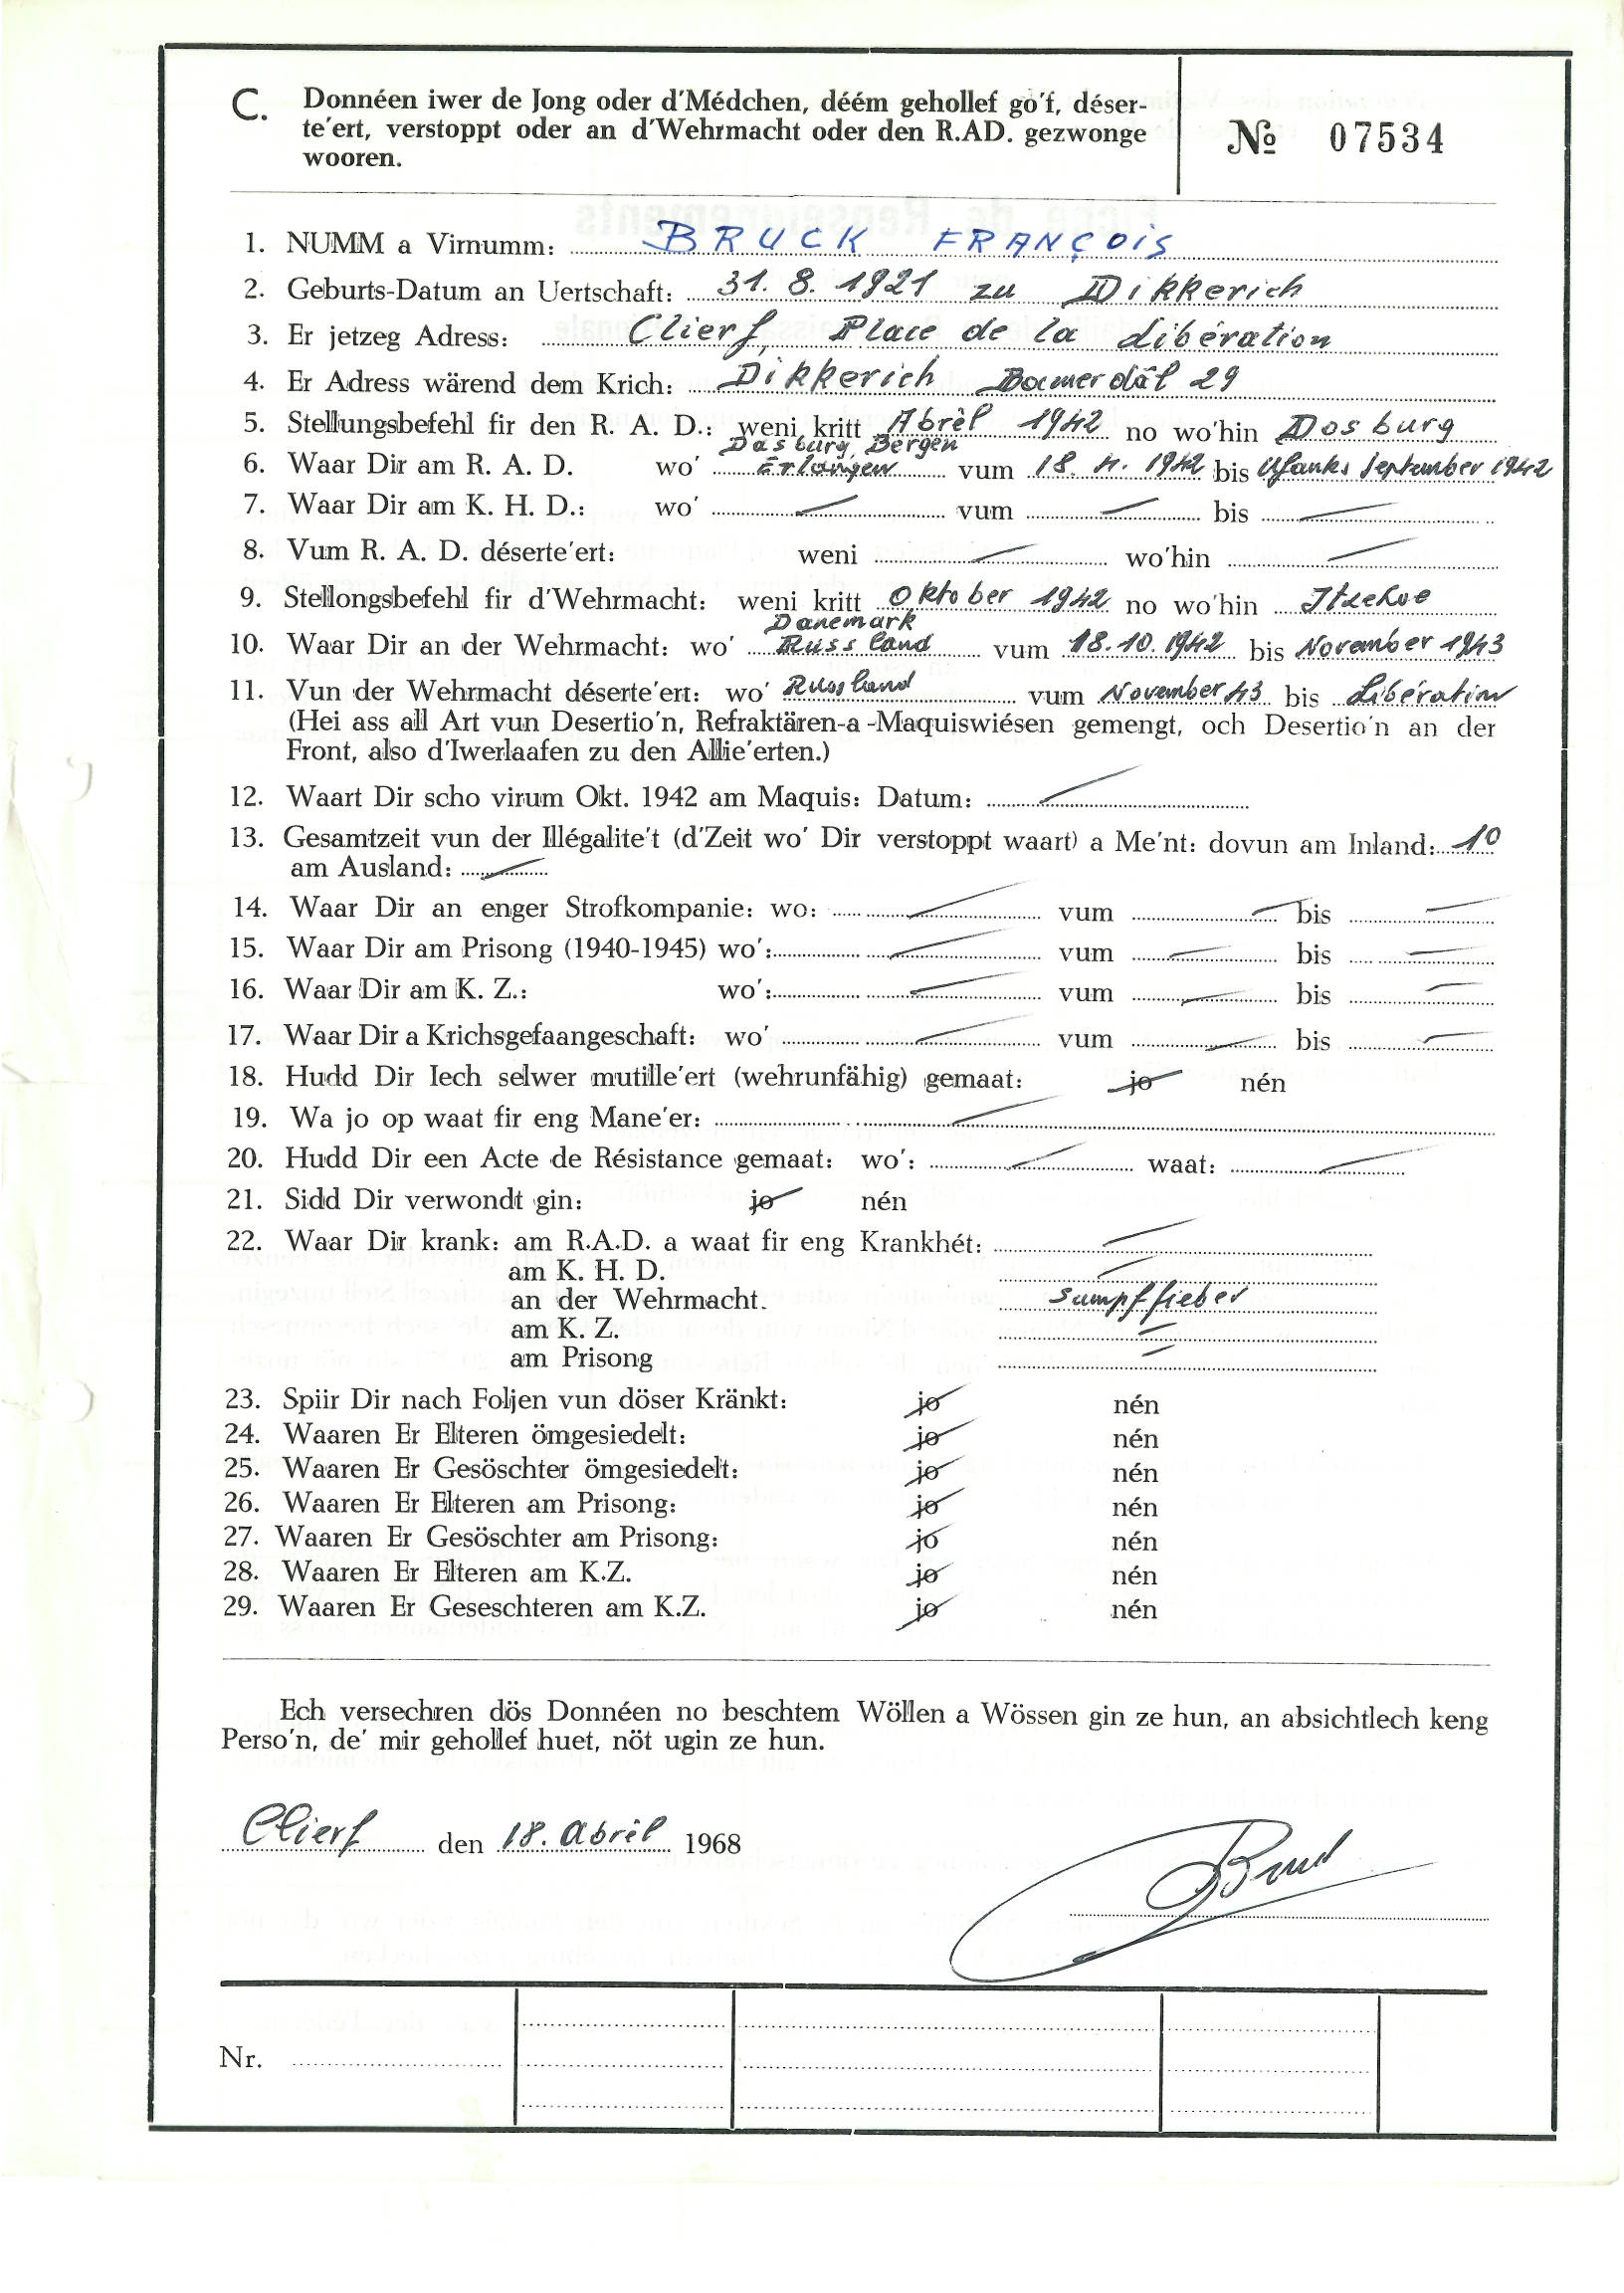 C. Donnéen iwer de Jong oder d'Médchen, déém gehollef go'f, déser-
te'ert, verstoppt oder an d'Wehrmacht oder den R.AD. gezwonge
wooren.
№ 07534
1. NUMM a Virnumm: BRUCK FRANÇOIS
2. Geburts-Datum an Uertschaft: 31. 8. 1921 zu Dikkerich
3. Er jetzeg Adress: Clierf, Place de la Libération
4. Er Adress wärend dem Krich: Dikkerich Bamerdâl 29
5. Stellungsbefehl fir den R. A. D.: weni kritt Abrèl 1942 no wo'hin Dosburg
Dasburg, Bergen
6. Waar Dir am R. A. D. wo' Erlangen vum 18. 4. 1942 bis Ufanks September 1942
7. Waar Dir am K. H. D.: wo' — vum — bis —
8. Vum R. A. D. déserte'ert: weni — wo'hin —
9. Stellongsbefehl fir d'Wehrmacht: weni kritt Oktober 1942 no wo'hin Itzehoe
Danemark
10. Waar Dir an der Wehrmacht: wo' Russland vum 18.10.1942 bis November 1943
11. Vun der Wehrmacht déserte'ert: wo' Russland vum November 43 bis Libération
(Hei ass all Art vun Desertio'n, Refraktären-a-Maquiswiésen gemengt, och Desertio'n an der
Front, also d'Iwerlaafen zu den Allie'erten.)
12. Waart Dir scho virum Okt. 1942 am Maquis: Datum: —
13. Gesamtzeit vun der Illégalite't (d'Zeit wo' Dir verstoppt waart) a Me'nt: dovun am Inland: 10
am Ausland: —
14. Waar Dir an enger Strofkompanie: wo: — vum — bis —
15. Waar Dir am Prisong (1940-1945) wo': — vum — bis —
16. Waar Dir am K. Z.: wo': — vum — bis —
17. Waar Dir a Krichsgefaangeschaft: wo' — vum — bis —
18. Hudd Dir Iech selwer mutille'ert (wehrunfähig) gemaat: jo nén
19. Wa jo op waat fir eng Mane'er: —
20. Hudd Dir een Acte de Résistance gemaat: wo': — waat: —
21. Sidd Dir verwondt gin: jo nén
22. Waar Dir krank: am R.A.D. a waat fir eng Krankhét: —
am K. H. D. —
an der Wehrmacht. Sumpffieber
am K. Z. —
am Prisong —
23. Spiir Dir nach Foljen vun döser Kränkt: jo nén
24. Waaren Er Elteren ömgesiedelt: jo nén
25. Waaren Er Gesöschter ömgesiedelt: jo nén
26. Waaren Er Elteren am Prisong: jo nén
27. Waaren Er Gesöschter am Prisong: jo nén
28. Waaren Er Elteren am K.Z. jo nén
29. Waaren Er Geseschteren am K.Z. jo nén
Ech versechren dös Donnéen no beschtem Wöllen a Wössen gin ze hun, an absichtlech keng
Perso'n, de' mir gehollef huet, nöt ugin ze hun.
Clierf den 18. Abrèl 1968
Nr.